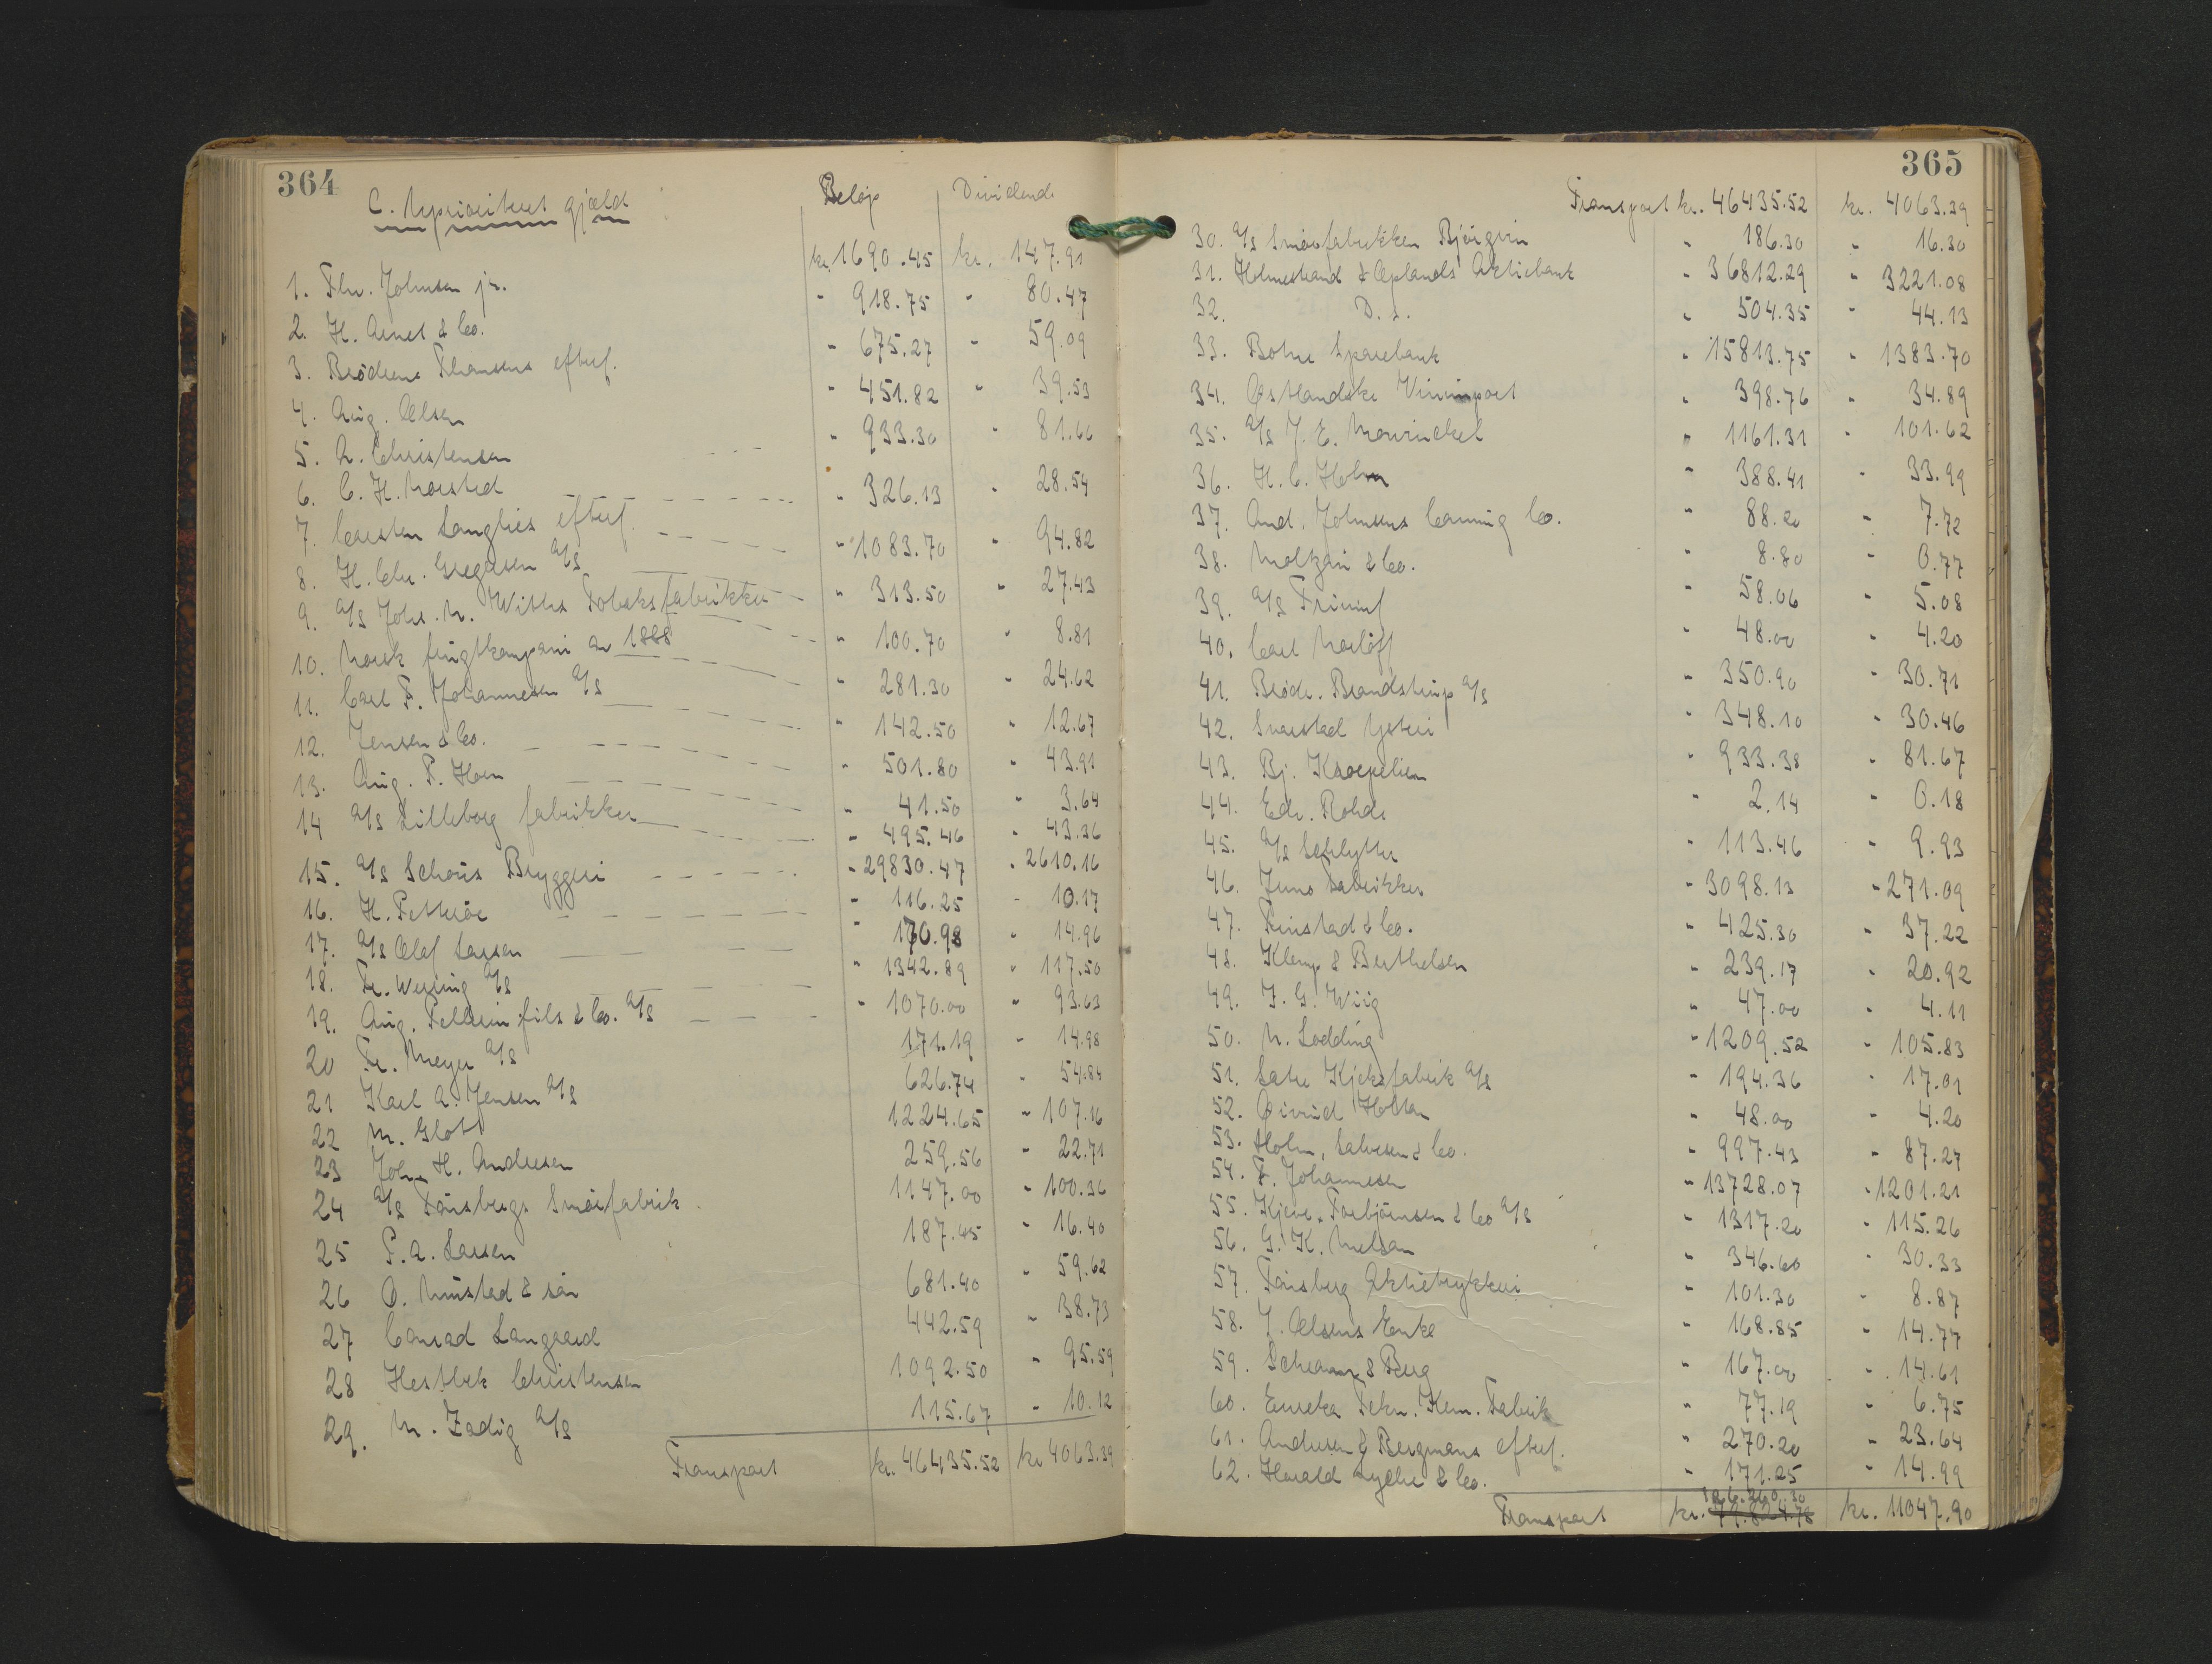 364
C. Uprioritert gjæld Beløp Dividende
1. Thv. Johnsen jr. kr. 1690.45 kr. 147.91
2. H. Arnet & Co. " 918.75 " 80.47
3. Brödrene Thansens eftf. " 675.27 " 59.09
4. Aug. Olsen " 451.82 " 39.53
5. A. Christensen " 933.30 " 81.66
6. C. H. Norsted " 326.13 " 28.54
7. Carsten Langlies eftf. " 1083.70 " 94.82
8. H. Chr. Gregersen A/S " 313.50 " 27.43
9. A/S Johs. N. Withs Tobaksfabrikker " 100.70 " 8.81
10. Norsk frugtkompani av 1888 " 281.30 " 24.62
11. Carl F. Johannesen A/S " 142.50 " 12.67
12. Jensen & Co. " 501.80 " 43.91
13. Aug. F. Horn " 41.50 " 3.64
14 A/S Lilleborg fabrikker " 495.46 " 43.36
15. A/S Schous Bryggeri " 29830.47 " 2610.16
16. H. Petterøe " 116.25 " 10.17
17. A/S Olaf Larsen " 170.98 " 14.96
18. Fr. Wering A/S " 1342.89 " 117.50
19. Aug. Pellerin fils & Co. A/S " 1070.00 " 93.63
20 Fr. Meyer A/S 171.19 " 14.98
21 Karl A. Jensen A/S 626.74 " 54.84
22 M. Glott 1224.65 " 107.16
23 Joh. H. Andresen 259.56 " 22.71
24 A/S Tönsbergs Smörfabrik 1147.00 " 100.36
25 P. A. Larsen 187.45 " 16.40
26 O. Mustad & sön 681.40 " 59.62
27 Conrad Langaard 442.59 " 38.73
28 Hestbek Christensen 1092.50 " 95.59
29. M. Zadig A/S 115.67 " 10.12
Transport kr. 46435.52 kr 4063.39
365
Transport kr. 46435.52 kr. 4063.39
30. A/S Smörfabrikken Bjørgvin " 186.30 " 16.30
31. Holmestrand & Oplands Aktiebank " 36812.29 " 3221.08
32. D.s. " 504.35 " 44.13
33. Botne Sparebank " 15813.75 " 1383.70
34. Østlandske Vinimport " 398.76 " 34.89
35. A/S J. E. Mowinckel " 1161.31 " 101.62
36. H. C. Holm " 388.41 " 33.99
37. And. Johnsens Canning Co. " 88.20 " 7.72
38. Moltzau & Co. " 8.80 " 0.77
39. A/S Triumf " 58.06 " 5.08
40. Carl Norlöff " 48.00 " 4.20
41. Brødr. Brandstrup A/S " 350.90 " 30.71
42. Svarstad Ysteri " 348.10 " 30.46
43. Bj. Kraepelien " 933.38 " 81.67
44. Edv. Rohde " 2.14 " 0.18
45. A/S Schlytter " 113.46 " 9.93
46. Juno fabrikker " 3098.13 " 271.09
47. Finstad & Co. " 425.30 " 37.22
48. Klemp & Berthelsen " 239.17 " 20.92
49. J. G. Wiig " 47.00 " 4.11
50. N. Lodding " 1209.52 " 105.83
51. Sætre Kjeksfabrik A/S " 194.36 " 17.01
52. Øivind Holtan " 48.00 " 4.20
53. Holm, Salvesen & Co. " 997.43 " 87.27
54. F. Johannesen " 13728.07 " 1201.21
55. Kjeve, Torbjörnsen & Co A/S " 1317.20 " 115.26
56. G. K. Melsom " 346.60 " 30.33
57. Tönsberg Aktietrykkeri " 101.30 " 8.87
58. J. Olsens Enke " 168.85 " 14.77
59. Schramm & Berg " 167.00 " 14.61
60. Eureka Tekn. Kem. Fabrik " 77.19 " 6.75
61. Andresen & Bergmans eftf. " 270.20 " 23.64
62. Harald Lyche & Co. " 171.25 " 14.99
126.260.30
Transport kr. 79.824.78 kr. 11047.90